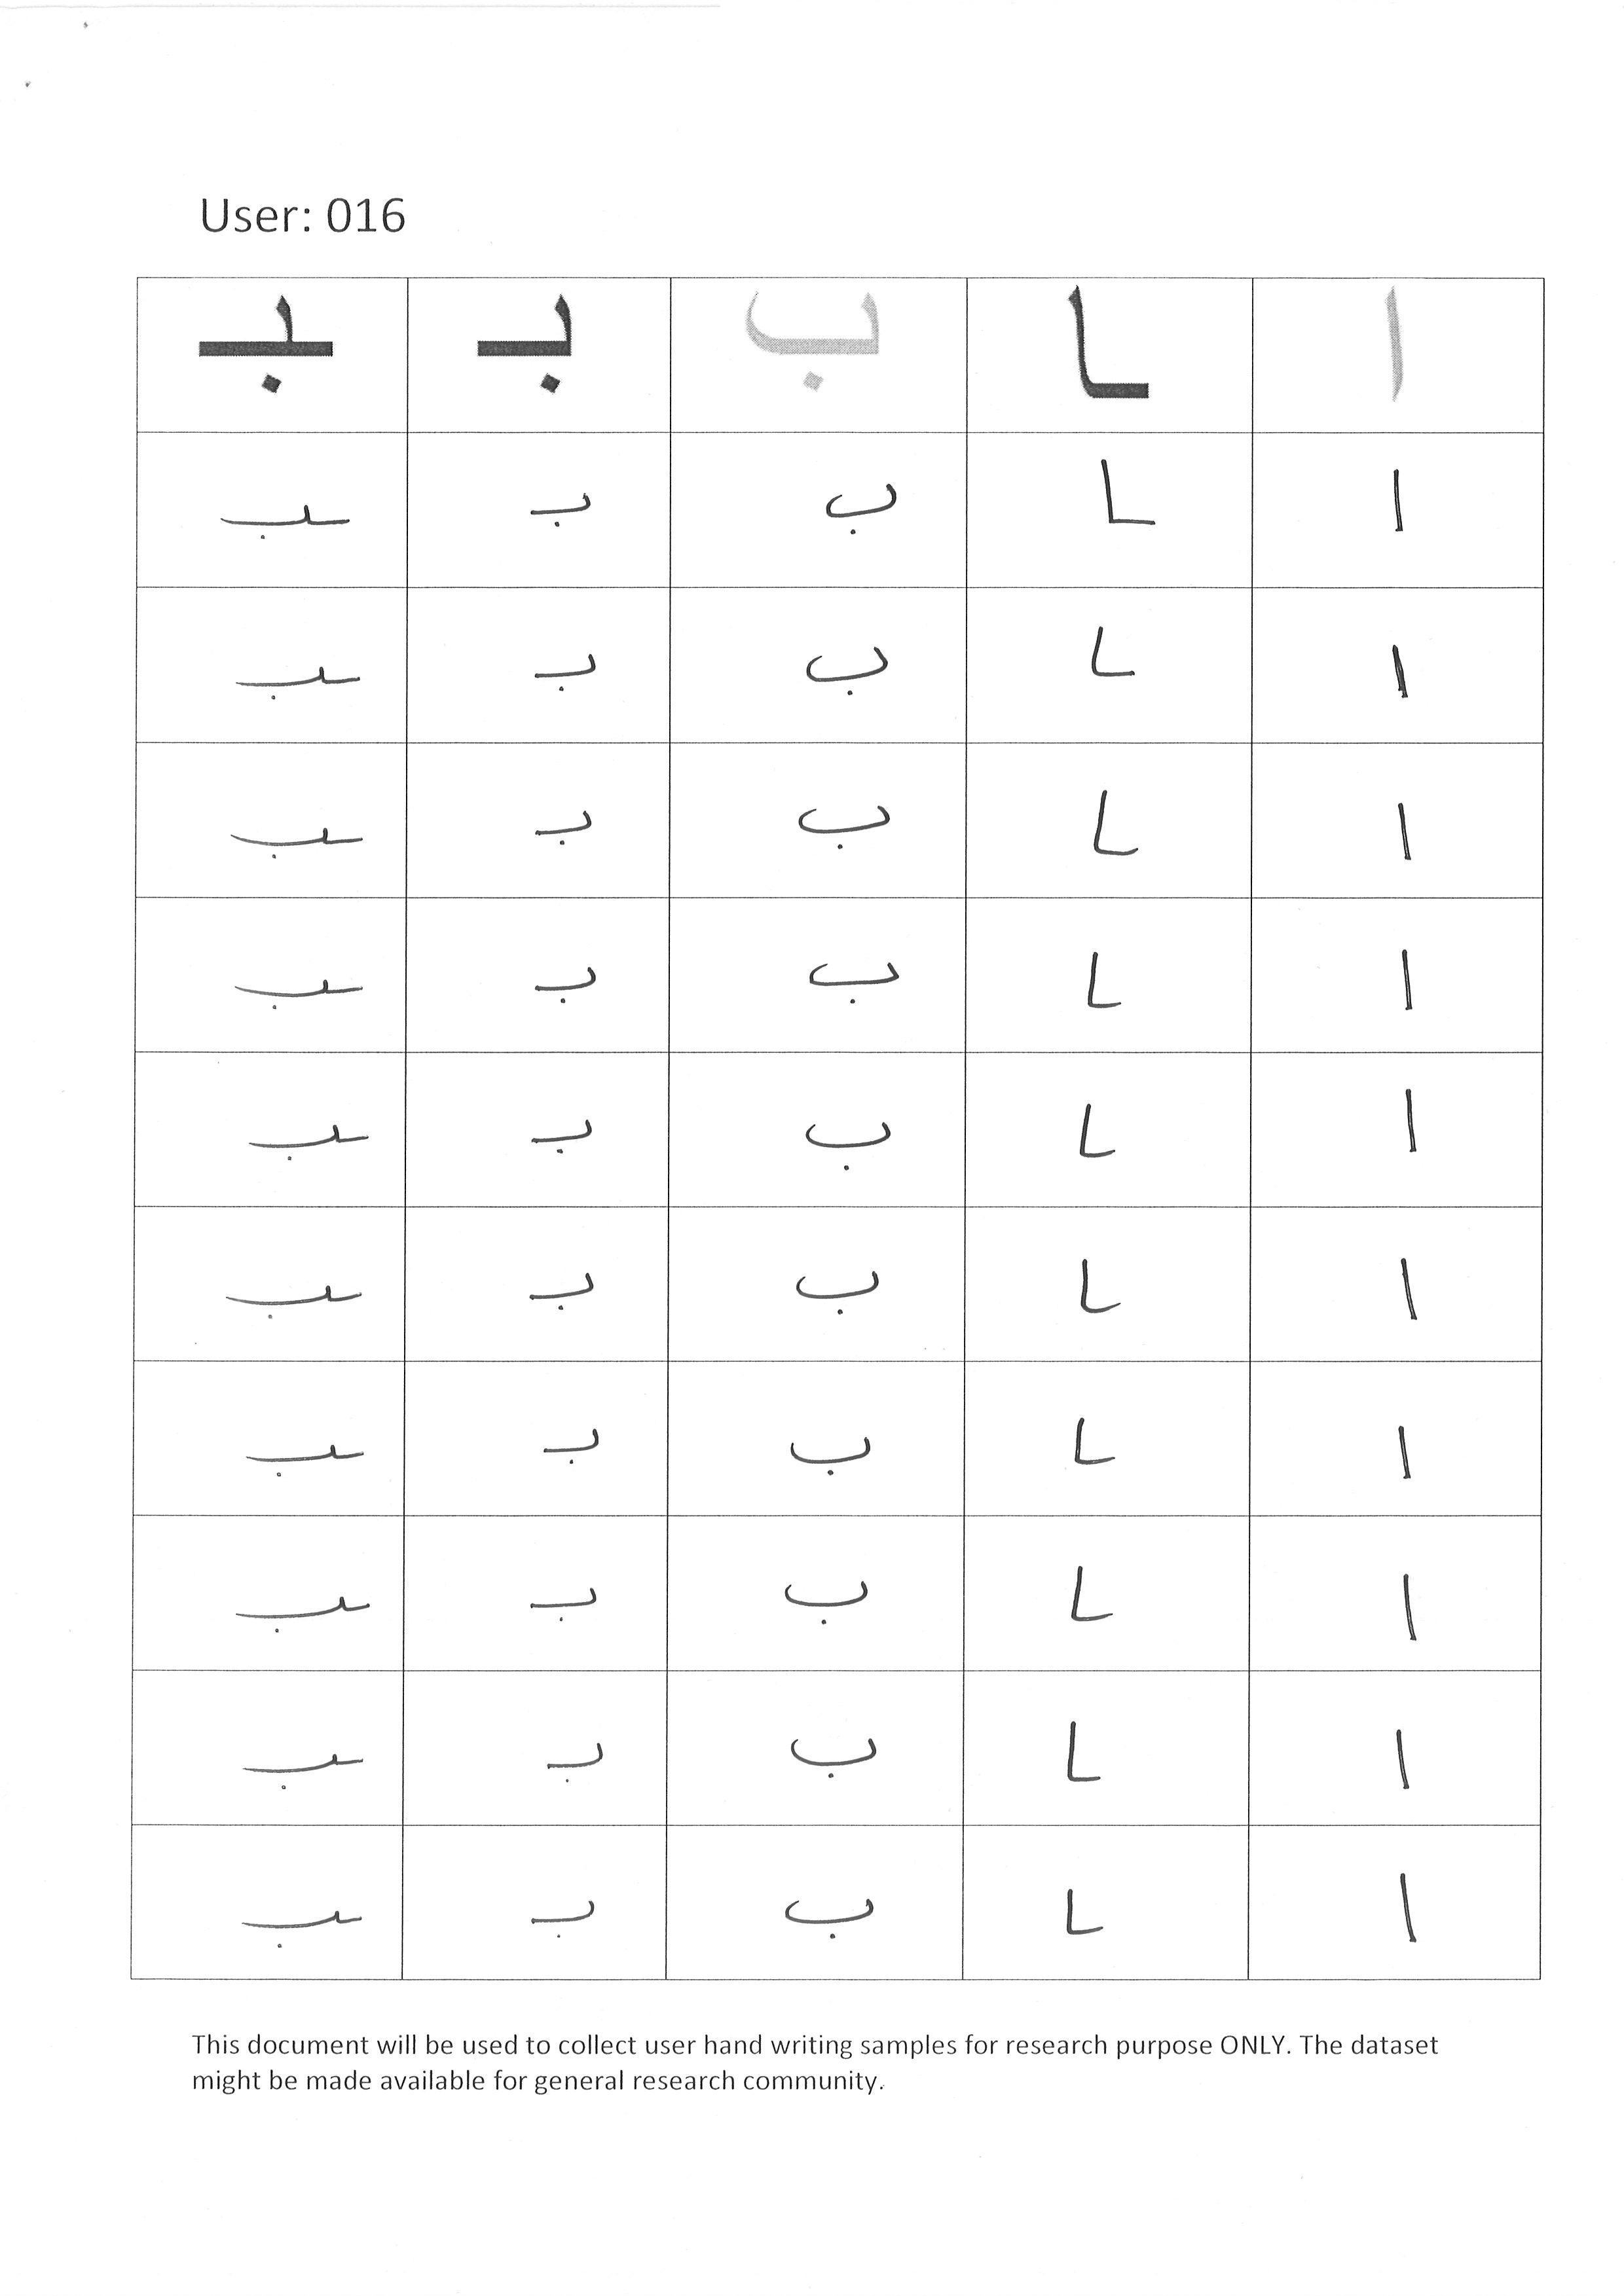 User: 016
ا ـا ب بـ ـبـ
ا ـا ب بـ ـبـ
ا ـا ب بـ ـبـ
ا ـا ب بـ ـبـ
ا ـا ب بـ ـبـ
ا ـا ب بـ ـبـ
ا ـا ب بـ ـبـ
ا ـا ب بـ ـبـ
ا ـا ب بـ ـبـ
ا ـا ب بـ ـبـ
ا ـا ب بـ ـبـ
This document will be used to collect user hand writing samples for research purpose ONLY. The dataset
might be made available for general research community.